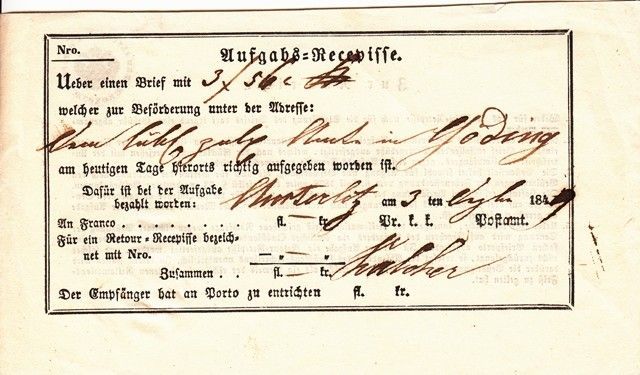 Nro.
Aufgabs=Recepisse.
Ueber einen Brief mit 3 / 56
welcher zur Beförderung unter der Adresse:
in Göding
am heutigen Tage hierorts richtig aufgegeben worden ist.
Dafür ist bei der Aufgabe
bezahlt worden: Austerlitz am 3 ten 184
An Franco . . . . . . . . fl. — kr. Pr. k. k. Postamt.
Für ein Retour=Recepisse bezeich=
net mit Nro. — „ — „
Zusammen . . . fl. — kr.
Der Empfänger hat an Porto zu entrichten fl. kr.